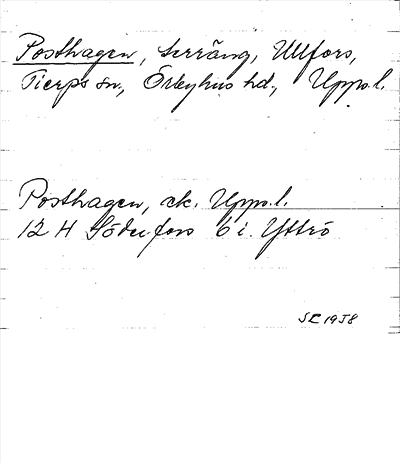 Posthagen, terräng, Ullfors,
Tierps sn, Örbyhus hd, Upps.l.
Posthagen, ek. Upps.l.
12 H Söderfors 6 i. Yttrö
SL 1958